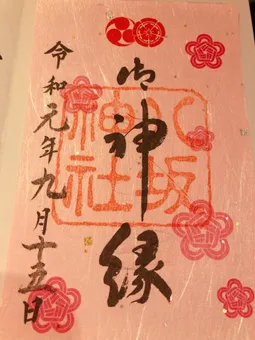 御神縁
八坂
神社
令和元年九月十五日